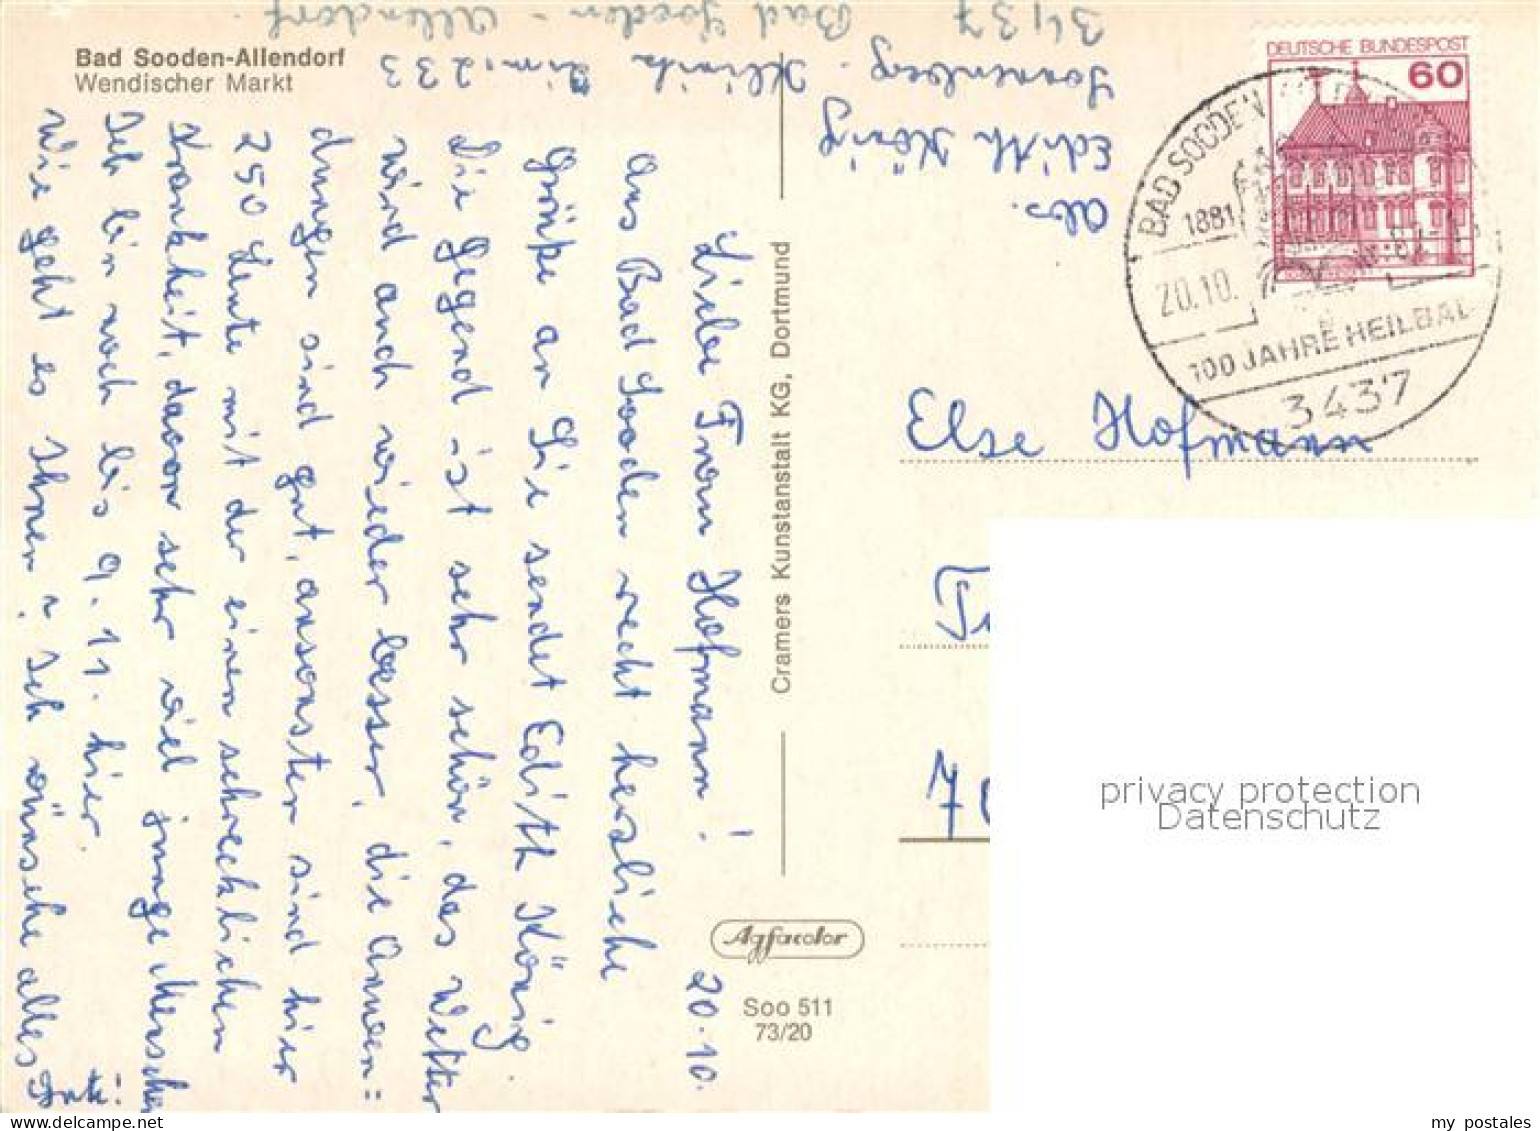 Bad Sooden-Allendorf
Wendischer Markt
Abs.
Edith König
Sonnenberg - Klinik Zim. 233
3437 Bad Sooden - Allendorf
DEUTSCHE BUNDESPOST
60
BAD SOODEN
1881
20.10.
100 JAHRE HEILBAD
3437
Else Hofmann
70
Liebe Frau Hofmann! 20.10.
aus Bad Sooden recht herzliche
Grüße an Sie sendet Edith König.
Die Gegend ist sehr schön, das Wetter
wird auch wieder besser, die Anwen=
dungen sind gut, ansonsten sind hier
250 Leute mit der einen schrecklichen
Krankheit, davon sehr viel junge Menschen
Ich bin noch bis 9. 11. hier.
Wie geht es Ihnen? Ich wünsche alles
Gute!
Cramers Kunstanstalt KG, Dortmund
Agfacolor
Soo 511
73/20
privacy protection
Datenschutz
my postales